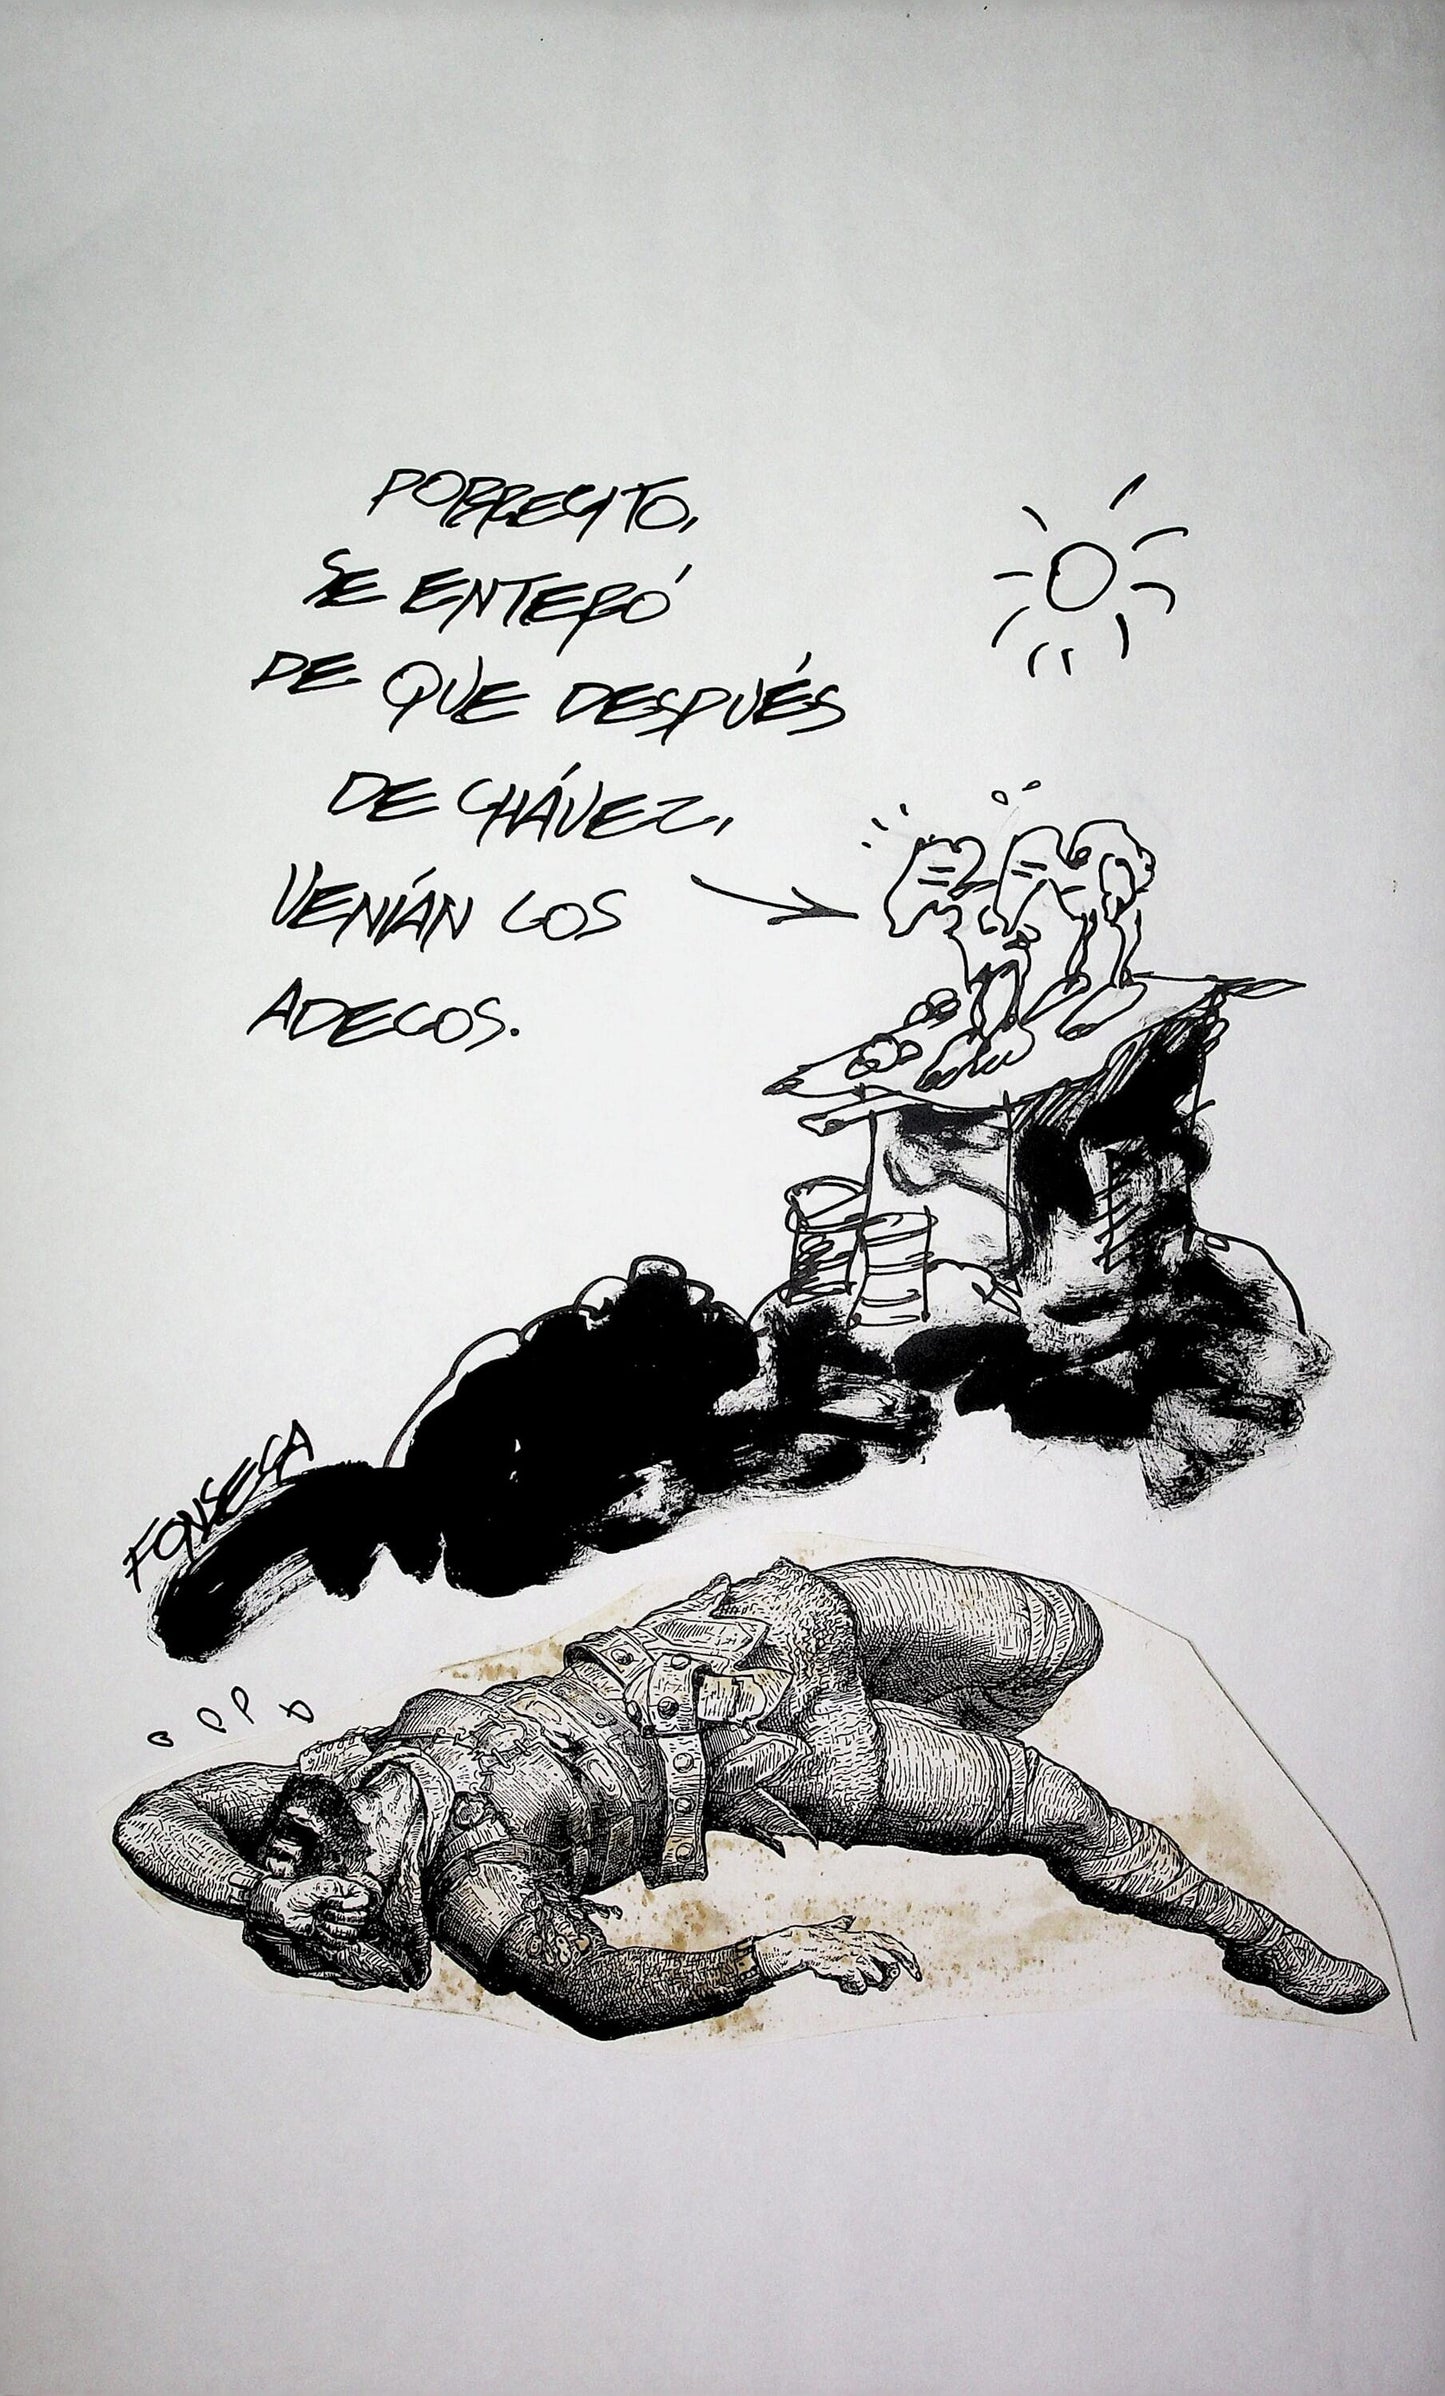 PORRECITO,
SE ENTERÓ
DE QUE DESPUÉS
DE CHÁVEZ,
VENÍAN LOS
ADECOS.
FONSECA